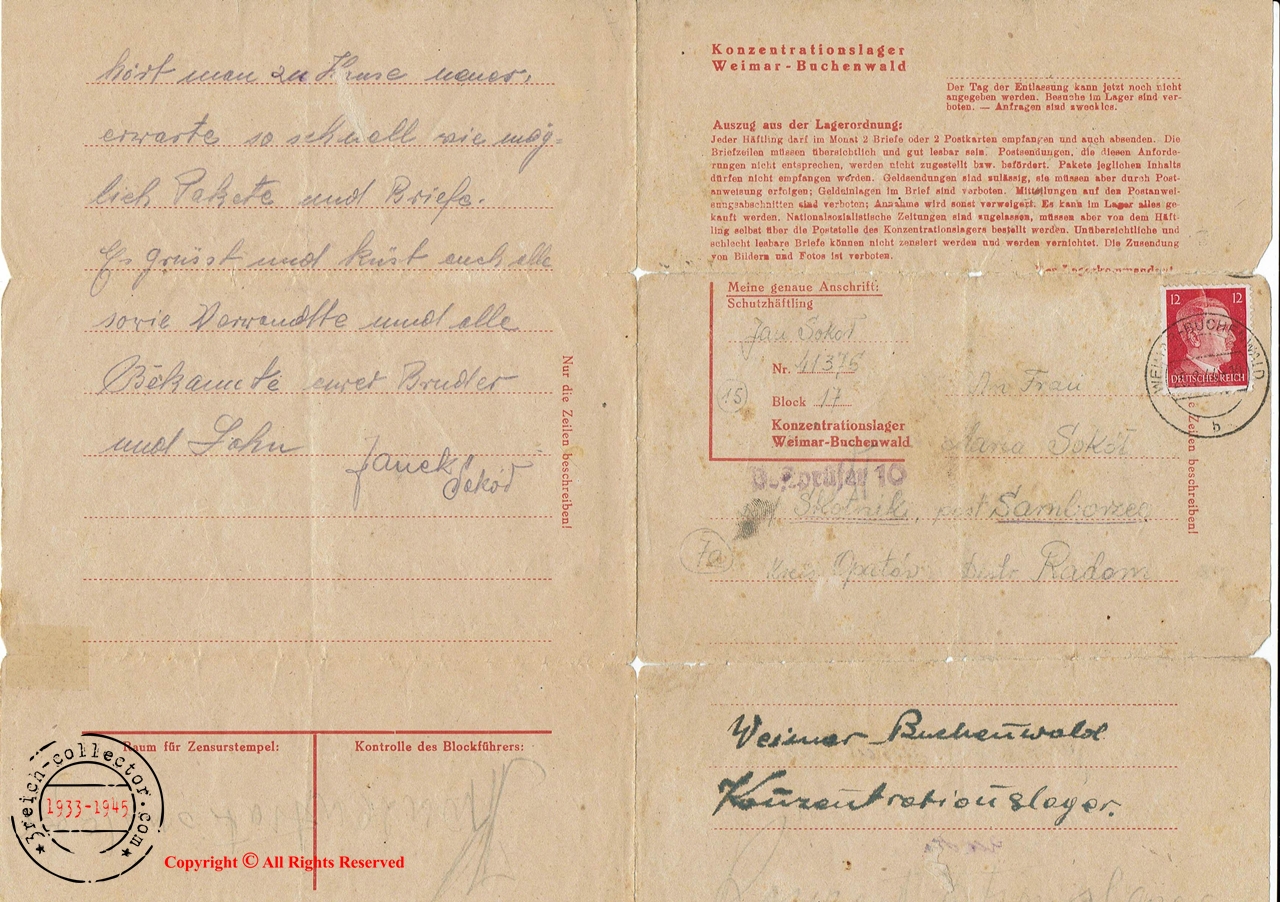 hört man zu Hause neues,
erwarte so schnell wie mög-
lich Pakete und Briefe.
Es grüsst und küst euch alle
sowie Verwandte und alle
Bekannte euer Bruder
und Sohn
Janek
Sokół
Nur die Zeilen beschreiben!
Raum für Zensurstempel:
Kontrolle des Blockführers:
Konzentrationslager
Weimar-Buchenwald
Der Tag der Entlassung kann jetzt noch nicht
angegeben werden. Besuche im Lager sind ver-
boten. — Anfragen sind zwecklos.
Auszug aus der Lagerordnung:
Jeder Häftling darf im Monat 2 Briefe oder 2 Postkarten empfangen und auch absenden. Die
Briefzeilen müssen übersichtlich und gut lesbar sein. Postsendungen, die diesen Anforde-
rungen nicht entsprechen, werden nicht zugestellt bzw. befördert. Pakete jeglichen Inhalts
dürfen nicht empfangen werden. Geldsendungen sind zulässig, sie müssen aber durch Post-
anweisung erfolgen; Geldeinlagen im Brief sind verboten. Mitteilungen auf den Postanwei-
sungsabschnitten sind verboten; Annahme wird sonst verweigert. Es kann im Lager alles ge-
kauft werden. Nationalsozialistische Zeitungen sind zugelassen, müssen aber von dem Häft-
ling selbst über die Poststelle des Konzentrationslagers bestellt werden. Unübersichtliche und
schlecht lesbare Briefe können nicht zensiert werden und werden vernichtet. Die Zusendung
von Bildern und Fotos ist verboten.
Der Lagerkommandant
Meine genaue Anschrift:
Schutzhäftling
Jan Sokół
Nr. 41375
15
Block 17
Konzentrationslager
Weimar-Buchenwald
12 12
DEUTSCHES REICH
WEIMAR-BUCHENWALD
b
Frau
Maria Sokół
Skotnik, post Samborzec
7a
Kreis Opatów Distr Radom
Zeilen beschreiben!
prüfer 10
Weimar-Buchenwald
Konzentrationslager.
3reich-collector.com
1933-1945
Copyright © All Rights Reserved